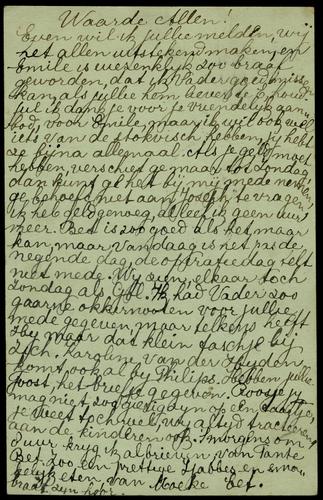 Waarde Allen!
Even wil ik jullie melden, wij
het allen uitstekend maken, en
Emile is wezenlijk zoo braaf
geworden, dat ik Vader goed missen
kan, als jullie hem liever
Jul ik dank je voor je vriendelijk aan-
bod, voor Emile, maar ik wil ook wel
iets van de stokvisch hebben, jij hebt
ze bijna allemaal. Als je geld moet
hebben, verschiet ge maar tot Zondag,
dan kunt ge het bij mij mede nemen,
ge behoeft niet aan Joseph te vragen,
ik heb geld genoeg, alleen ik geen uur
meer. Ben is zoo goed als het maar
kan, maar vandaag is het pas de
negende dag, de operatiedag telt
niet mede. Wij zien elkaar toch
Zondag als God had Vader zoo
gaarne okkernoten voor jullie
mede gegeven, maar telkens heeft
Hij maar dat klein taschje bij
zich. Karoline van der Heyden
komt ook al bij Philips. Hebben jullie
Joost, het briefje gegeven. Roosje
mag niet zoo gierig zijn op een
je weet toch wel, wij altijd tracteeren
aan de kinderen ook. 's morgens om
uur kryg ik al brieven van Tante
Bet zoo een prettige en smo
gelijk eten van Moeke Bet.
braaf zijn hoor